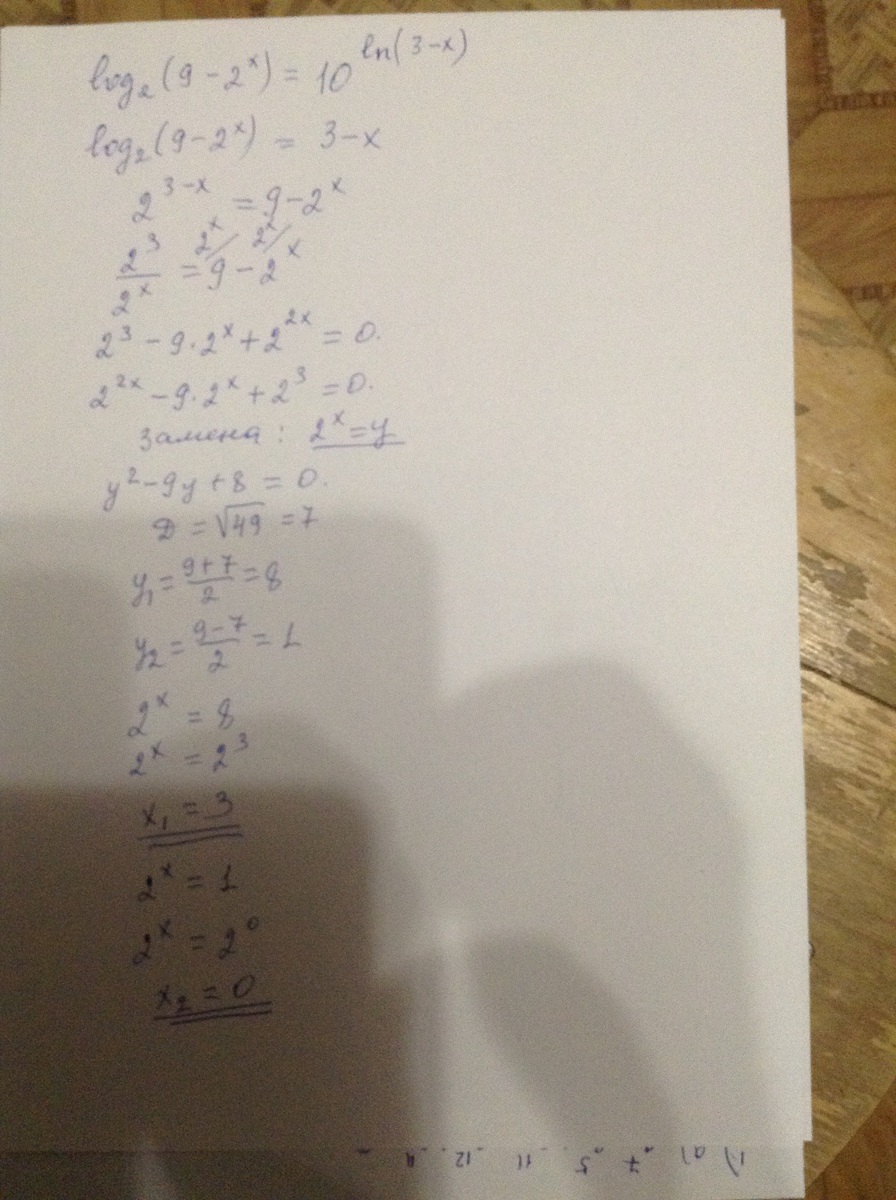 log₂(9-2ˣ) = 10^ln(3-x)
log₂(9-2ˣ) = 3-x
2^(3-x) = 9-2ˣ
2³/2ˣ = 9 - 2ˣ   2ˣ/ 2ˣ/
2³ - 9·2ˣ + 2^(2x) = 0.
2^(2x) - 9·2ˣ + 2³ = 0.
замена: 2ˣ=y
y²-9y+8 = 0.
D = √49 = 7
y₁ = (9+7)/2 = 8
y₂ = (9-7)/2 = 1
2ˣ = 8
2ˣ = 2³
x₁ = 3
2ˣ = 1
2ˣ = 2⁰
x₂ = 0